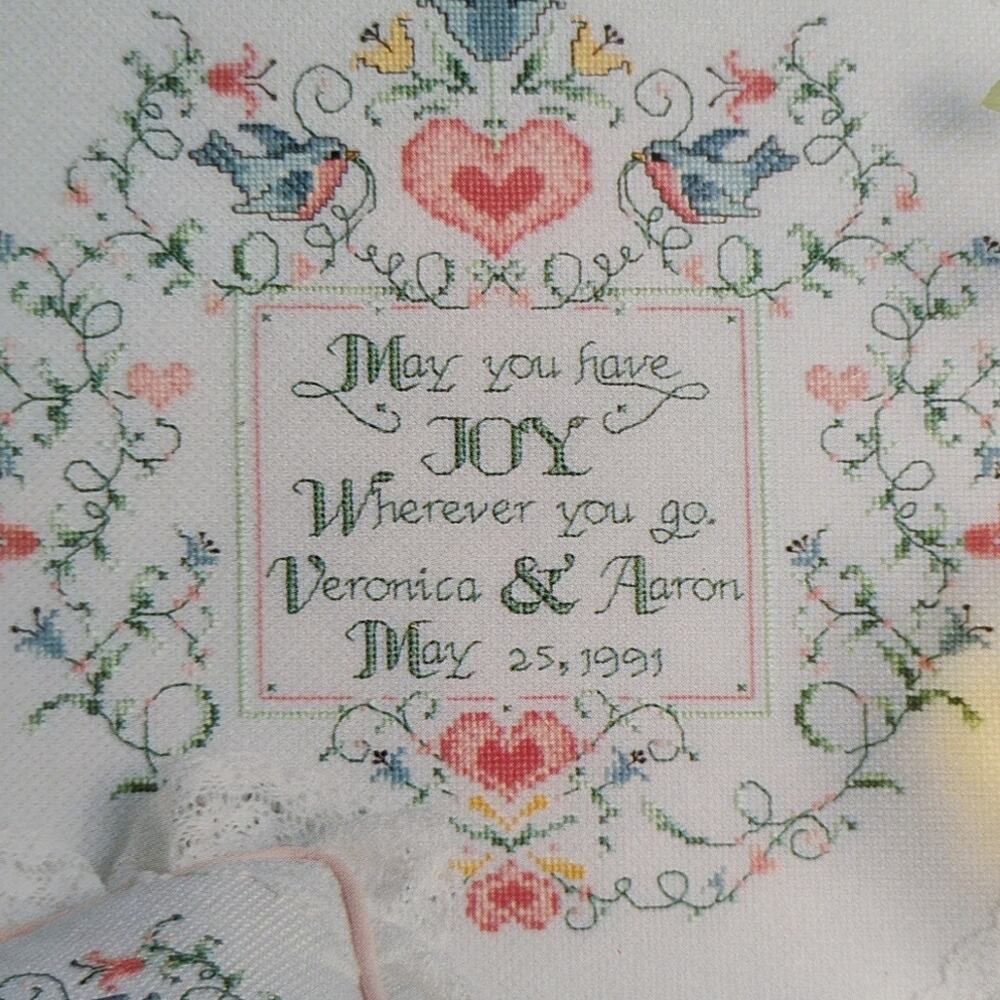 May you have
JOY
Wherever you go.
Veronica & Aaron
May 25, 1991